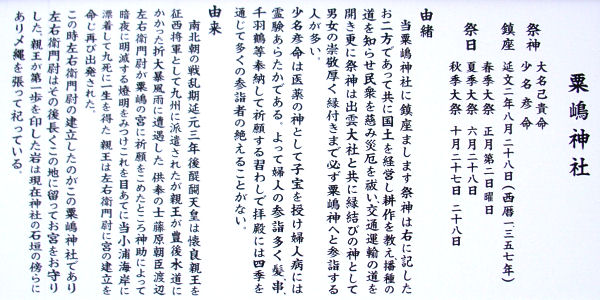 粟嶋神社
祭神 大名己貴命
少名彦命
鎮座 延文二年八月二十八日(西暦一三五七年)
祭日 春季大祭 正月第二日曜日
夏季大祭 六月二十八日
秋季大祭 十月二十七日 二十八日
由緒
当粟嶋神社に鎮座まします祭神は右に記した
お二方であって共に国土を経営し耕作を教え播種の
道を知らせ民衆を慈み災厄を祓い交通運輸の道を
開き更に祭神は出雲大社と共に縁結びの神として
男女の崇敬厚く縁付きまで必ず粟嶋神へと参詣する
人が多い。
少名彦命は医薬の神として子宝を授け婦人病には
霊験あらたかである。よって婦人の参詣多く髪、串、
千羽鶴等奉納して祈願する習わしで拝殿には四季を
通じて多くの参詣者の絶えることがない。
由来
南北朝の戦乱期延元三年後醍醐天皇は懐良親王を
征西将軍として九州に派遣されたが親王が豊後水道に
かかった折大暴風雨に遭遇した 供奉の士藤原朝臣渡辺
左右衛門尉が粟嶋の宮に祈願をこめたところ神助によって
暗夜に明滅する燈明をみつけこれを目あてに当小浦海岸に
漂着して九死に一生を得た 親王は左右衛門尉に宮の建立を
命じ再び出発された。
この時左右衛門尉の建立したのがこの粟嶋神社であり
左右衛門尉はその後長くこの地に留ってお宮をお守り
した。親王が第一歩を印した岩は現在神社の石垣の傍らに
ありメ縄を張って祀っている。